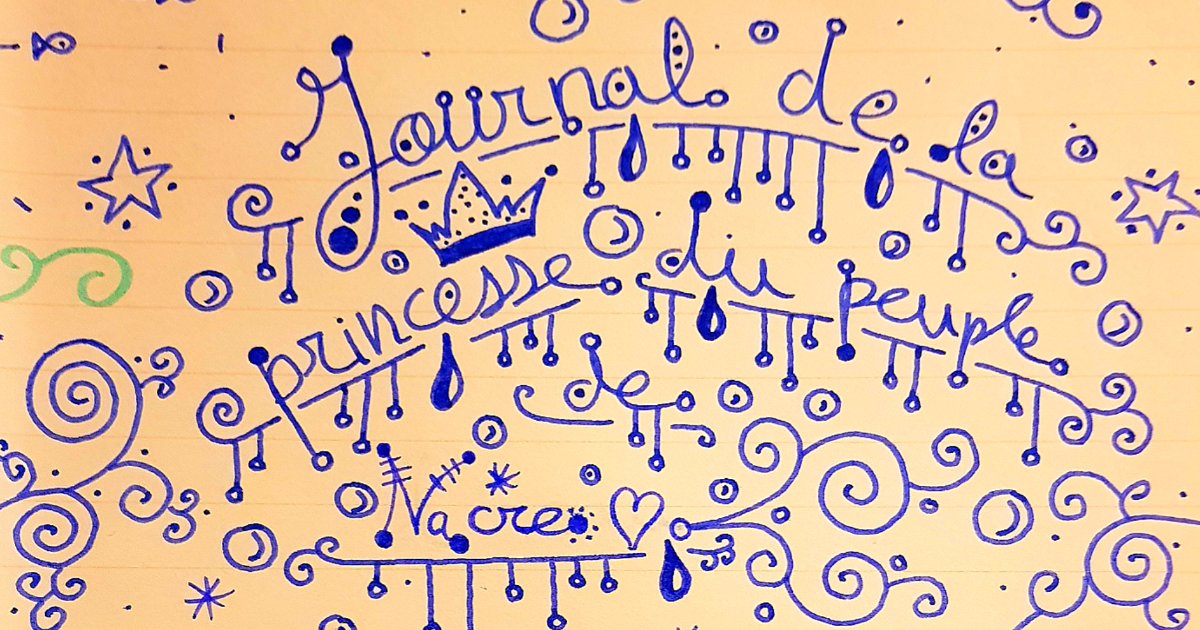 Journal de la
princesse du peuple
de
Nacre